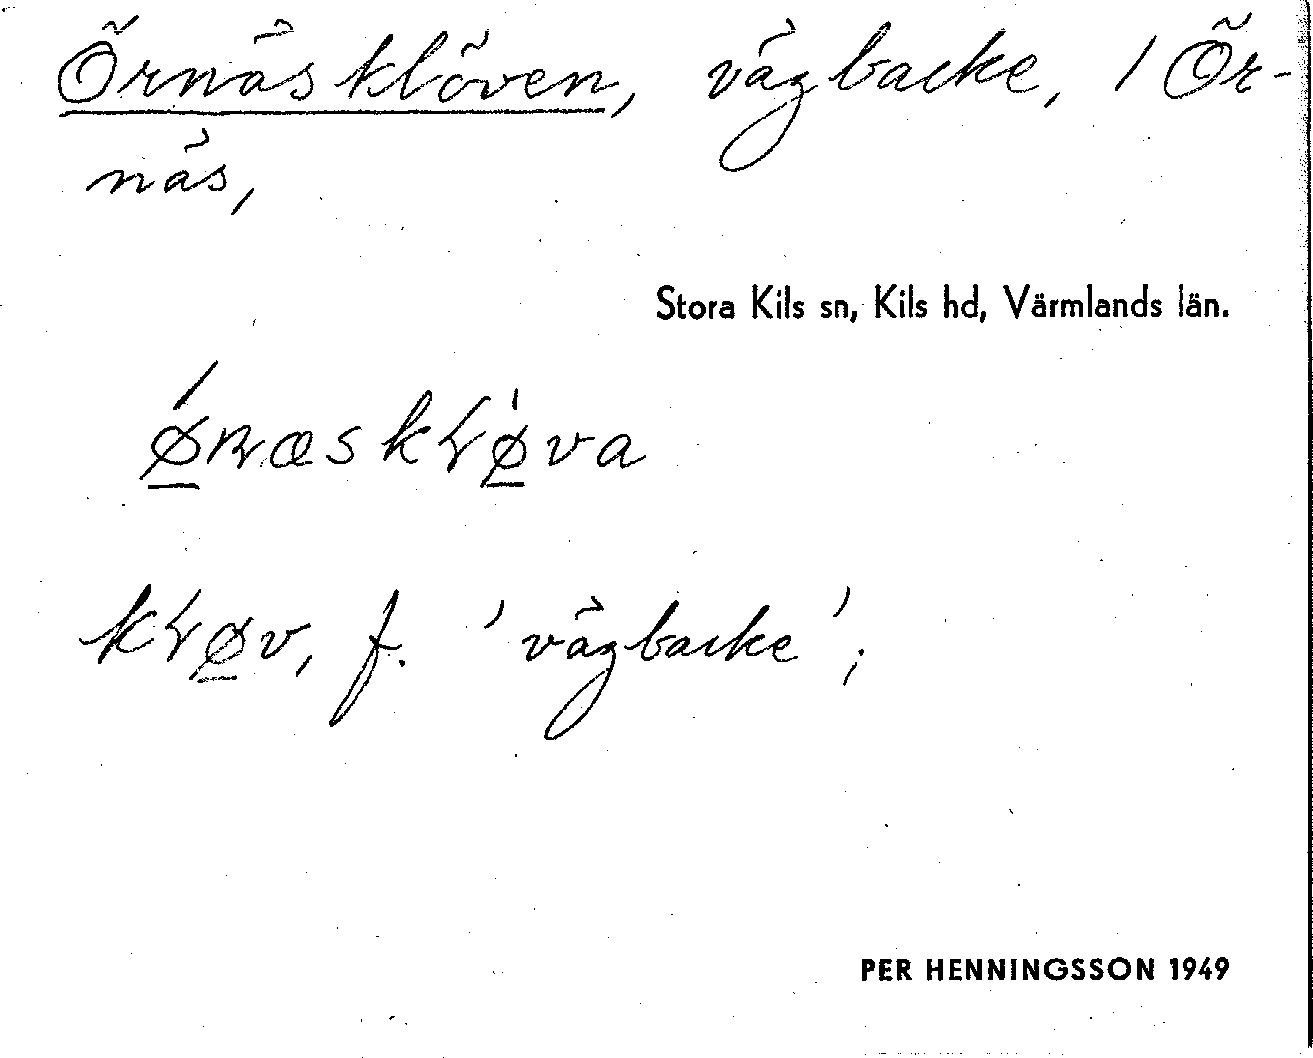 Örnäsklöven, vägbacke, / Ör-
näs,
Stora Kils sn, Kils hd, Värmlands län.
kɽøv, f. 'vägbacke';
PER HENNINGSSON 1949